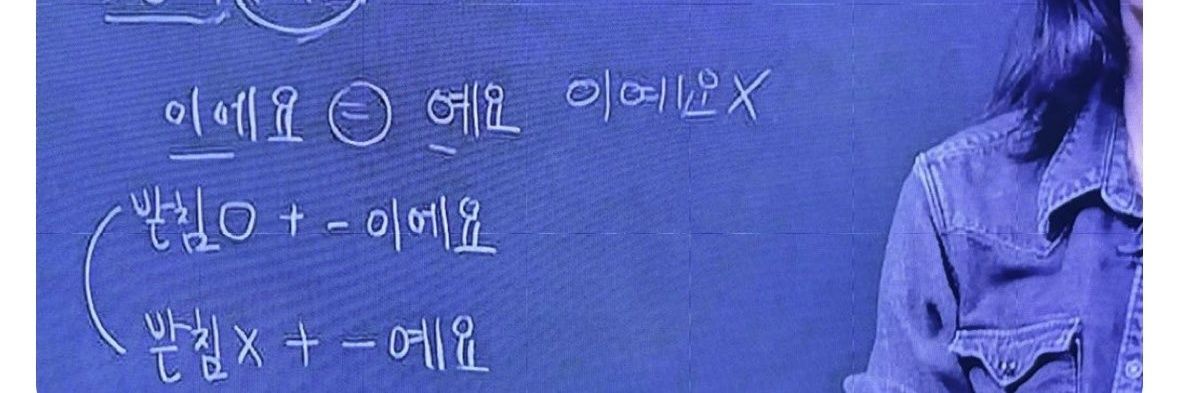 이에요 = 예요 이예요 X
받침O + - 이에요
받침X + - 예요